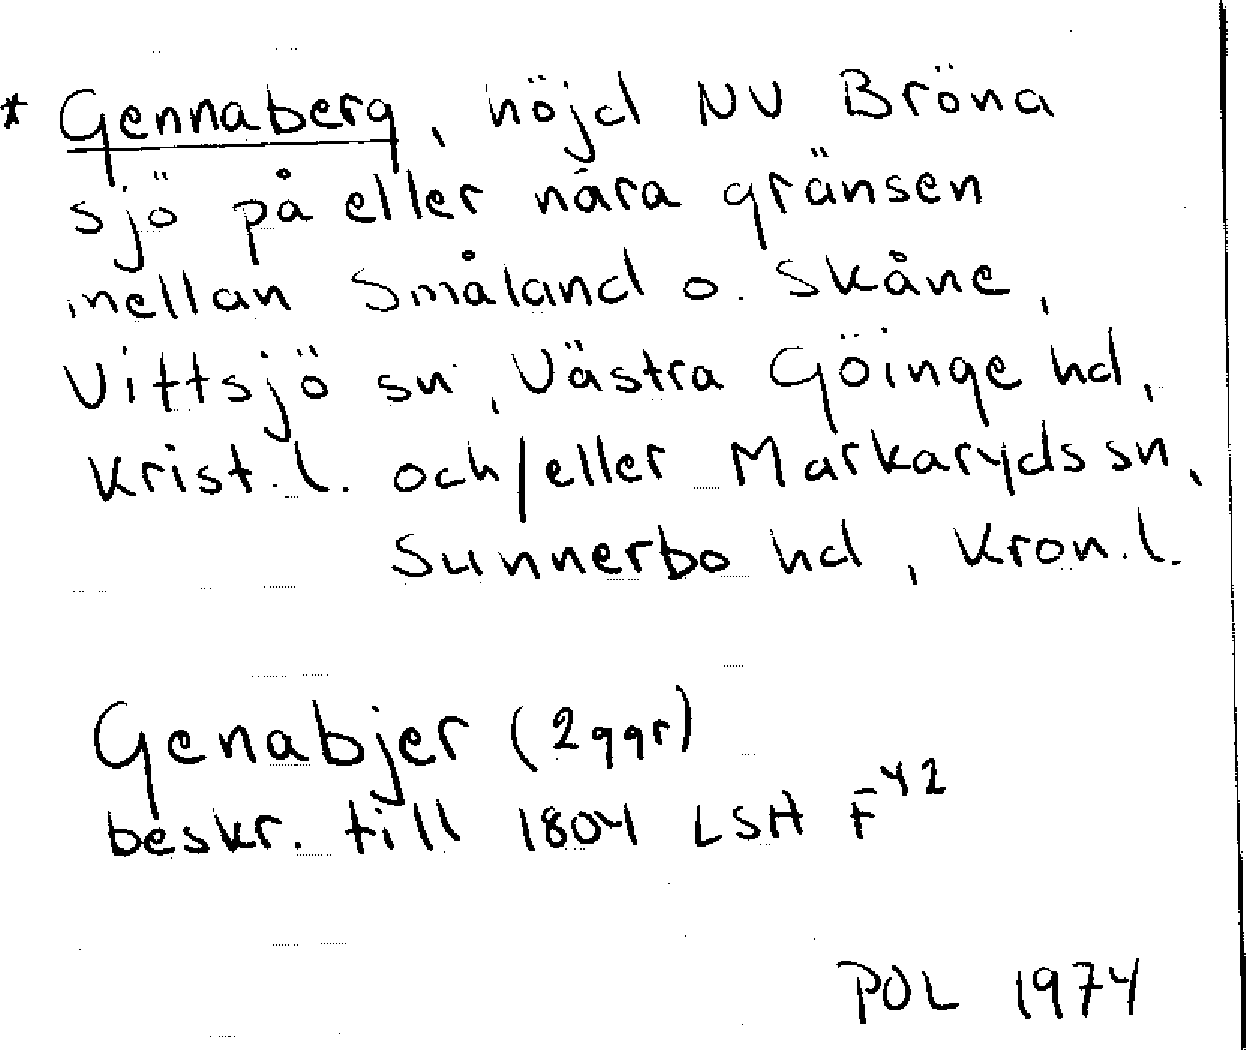 * Gennaberg, höjd NV Bröna
sjö på eller nära gränsen
mellan Småland o. Skåne,
Vittsjö sn, Västra Göinge hd,
Krist. l. och/eller Markaryds sn,
Sunnerbo hd, Kron. l.
Genabjer (2 ggr)
beskr. till 1804 LSH F42
POL 1974